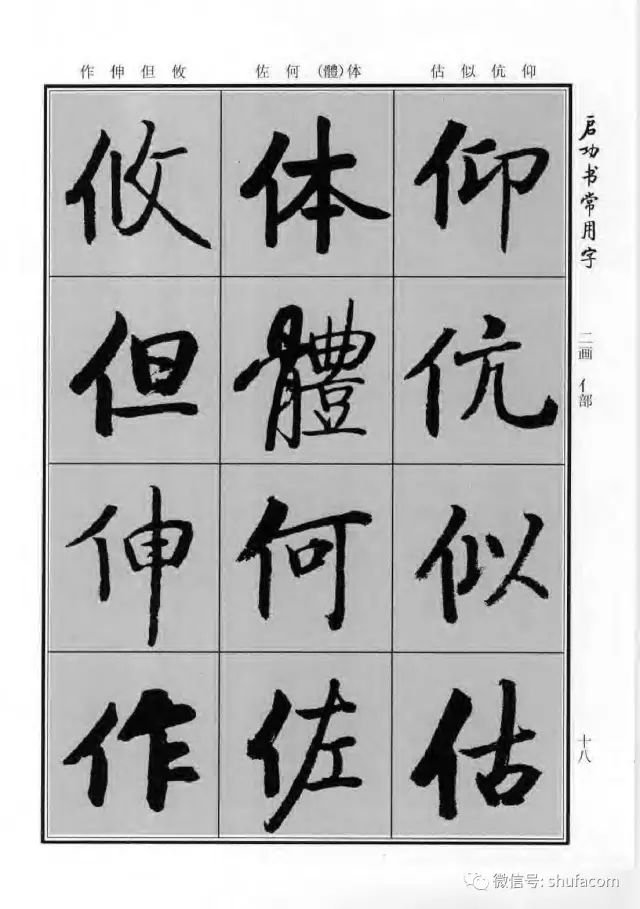 作伸但攸 佐何(體)体 估似伉仰
启功书常用字
二画 亻部
十八
仰 伉 似 估
体 體 何 佐
攸 但 伸 作
微信号: shufacom